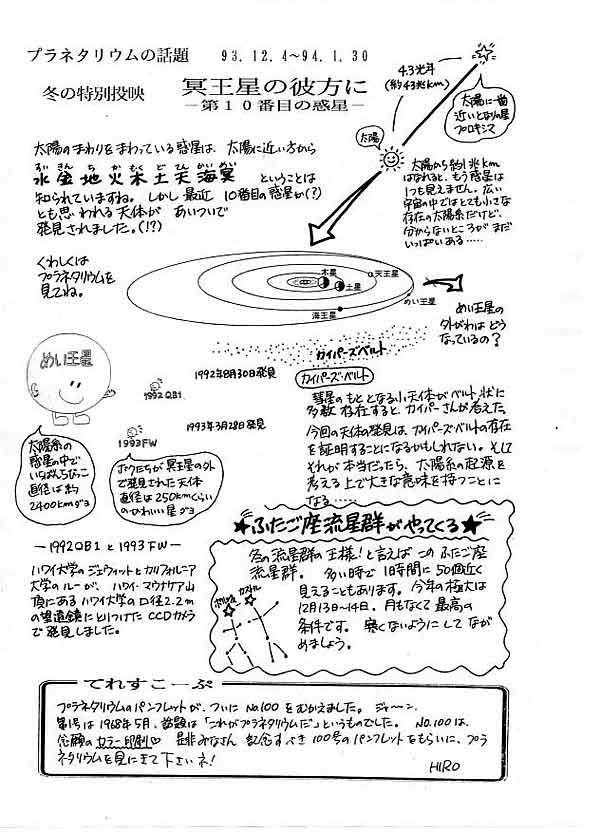 プラネタリウムの話題 93.12.4~94.1.30
冬の特別投映 冥王星の彼方に
－第１０番目の惑星－
4.3光年
(約43兆km)
太陽に一番
近いとなりの星
プロキシマ
太陽
太陽のまわりをまわっている惑星は、太陽に近い方から
すい きん ち か もく ど てん かい めい
水金地火木土天海冥 ということは
知られていますね。しかし最近 10番目の惑星か(?)
とも思われる天体が あいついで
発見されました。(!?)
くわしくは
プラネタリウムを
見てね。
太陽から約1兆km
はなれると、もう惑星は
1つも見えません。広い
宇宙の中ではとても小さな
存在の太陽系だけど、
分からないところが まだ
いっぱいある……
木星
土星
天王星
海王星
めい王星
めい王星の
外がわは どう
なっているの?
カイパーズベルト
めい王星
1992年8月30日発見
1992QB1
1993年3月28日発見
1993FW
太陽系の
惑星の中で
いちばんちびっこ
直径は約
2400kmダヨ
ボクたちが冥王星の外
で発見された天体
直径は250kmくらい
のかわいい星ダヨ
カイパーズ・ベルト
彗星のもととなる小天体がベルト状に
多数存在すると、カイパーさんが考えた。
今回の天体の発見は、カイパーズ・ベルトの存在
を証明することになるかもしれない。そして
それが本当だったら、太陽系の起源を
考える上で大きな意味を持つことに
なる……
－1992QB1と1993FW－
ハワイ大学のジェウィットとカリフォルニア
大学のルーが、ハワイ・マウナケア山
頂にあるハワイ大学の口径2.2m
の望遠鏡にとりつけたCCDカメラ
で発見しました。
★ふたご座流星群がやってくる★
冬の流星群の王様!と言えば このふたご座
流星群。多い時で1時間に50個近く
見えることもあります。今年の極大は
12月13日~14日、月もなくて最高の
条件です。寒くないようにして なが
めましょう。
ポルックス
カストル
てれすこーぷ
プラネタリウムのパンフレットが、ついにNo.100をむかえました。ジャ〜ン。
第1号は1968年5月、話題は「これがプラネタリウムだ」というものでした。No.100は、
念願のカラー印刷♡ 是非みなさん 記念すべき100号のパンフレットをもらいに、プラ
ネタリウムを見にきて下さいネ!
HIRO